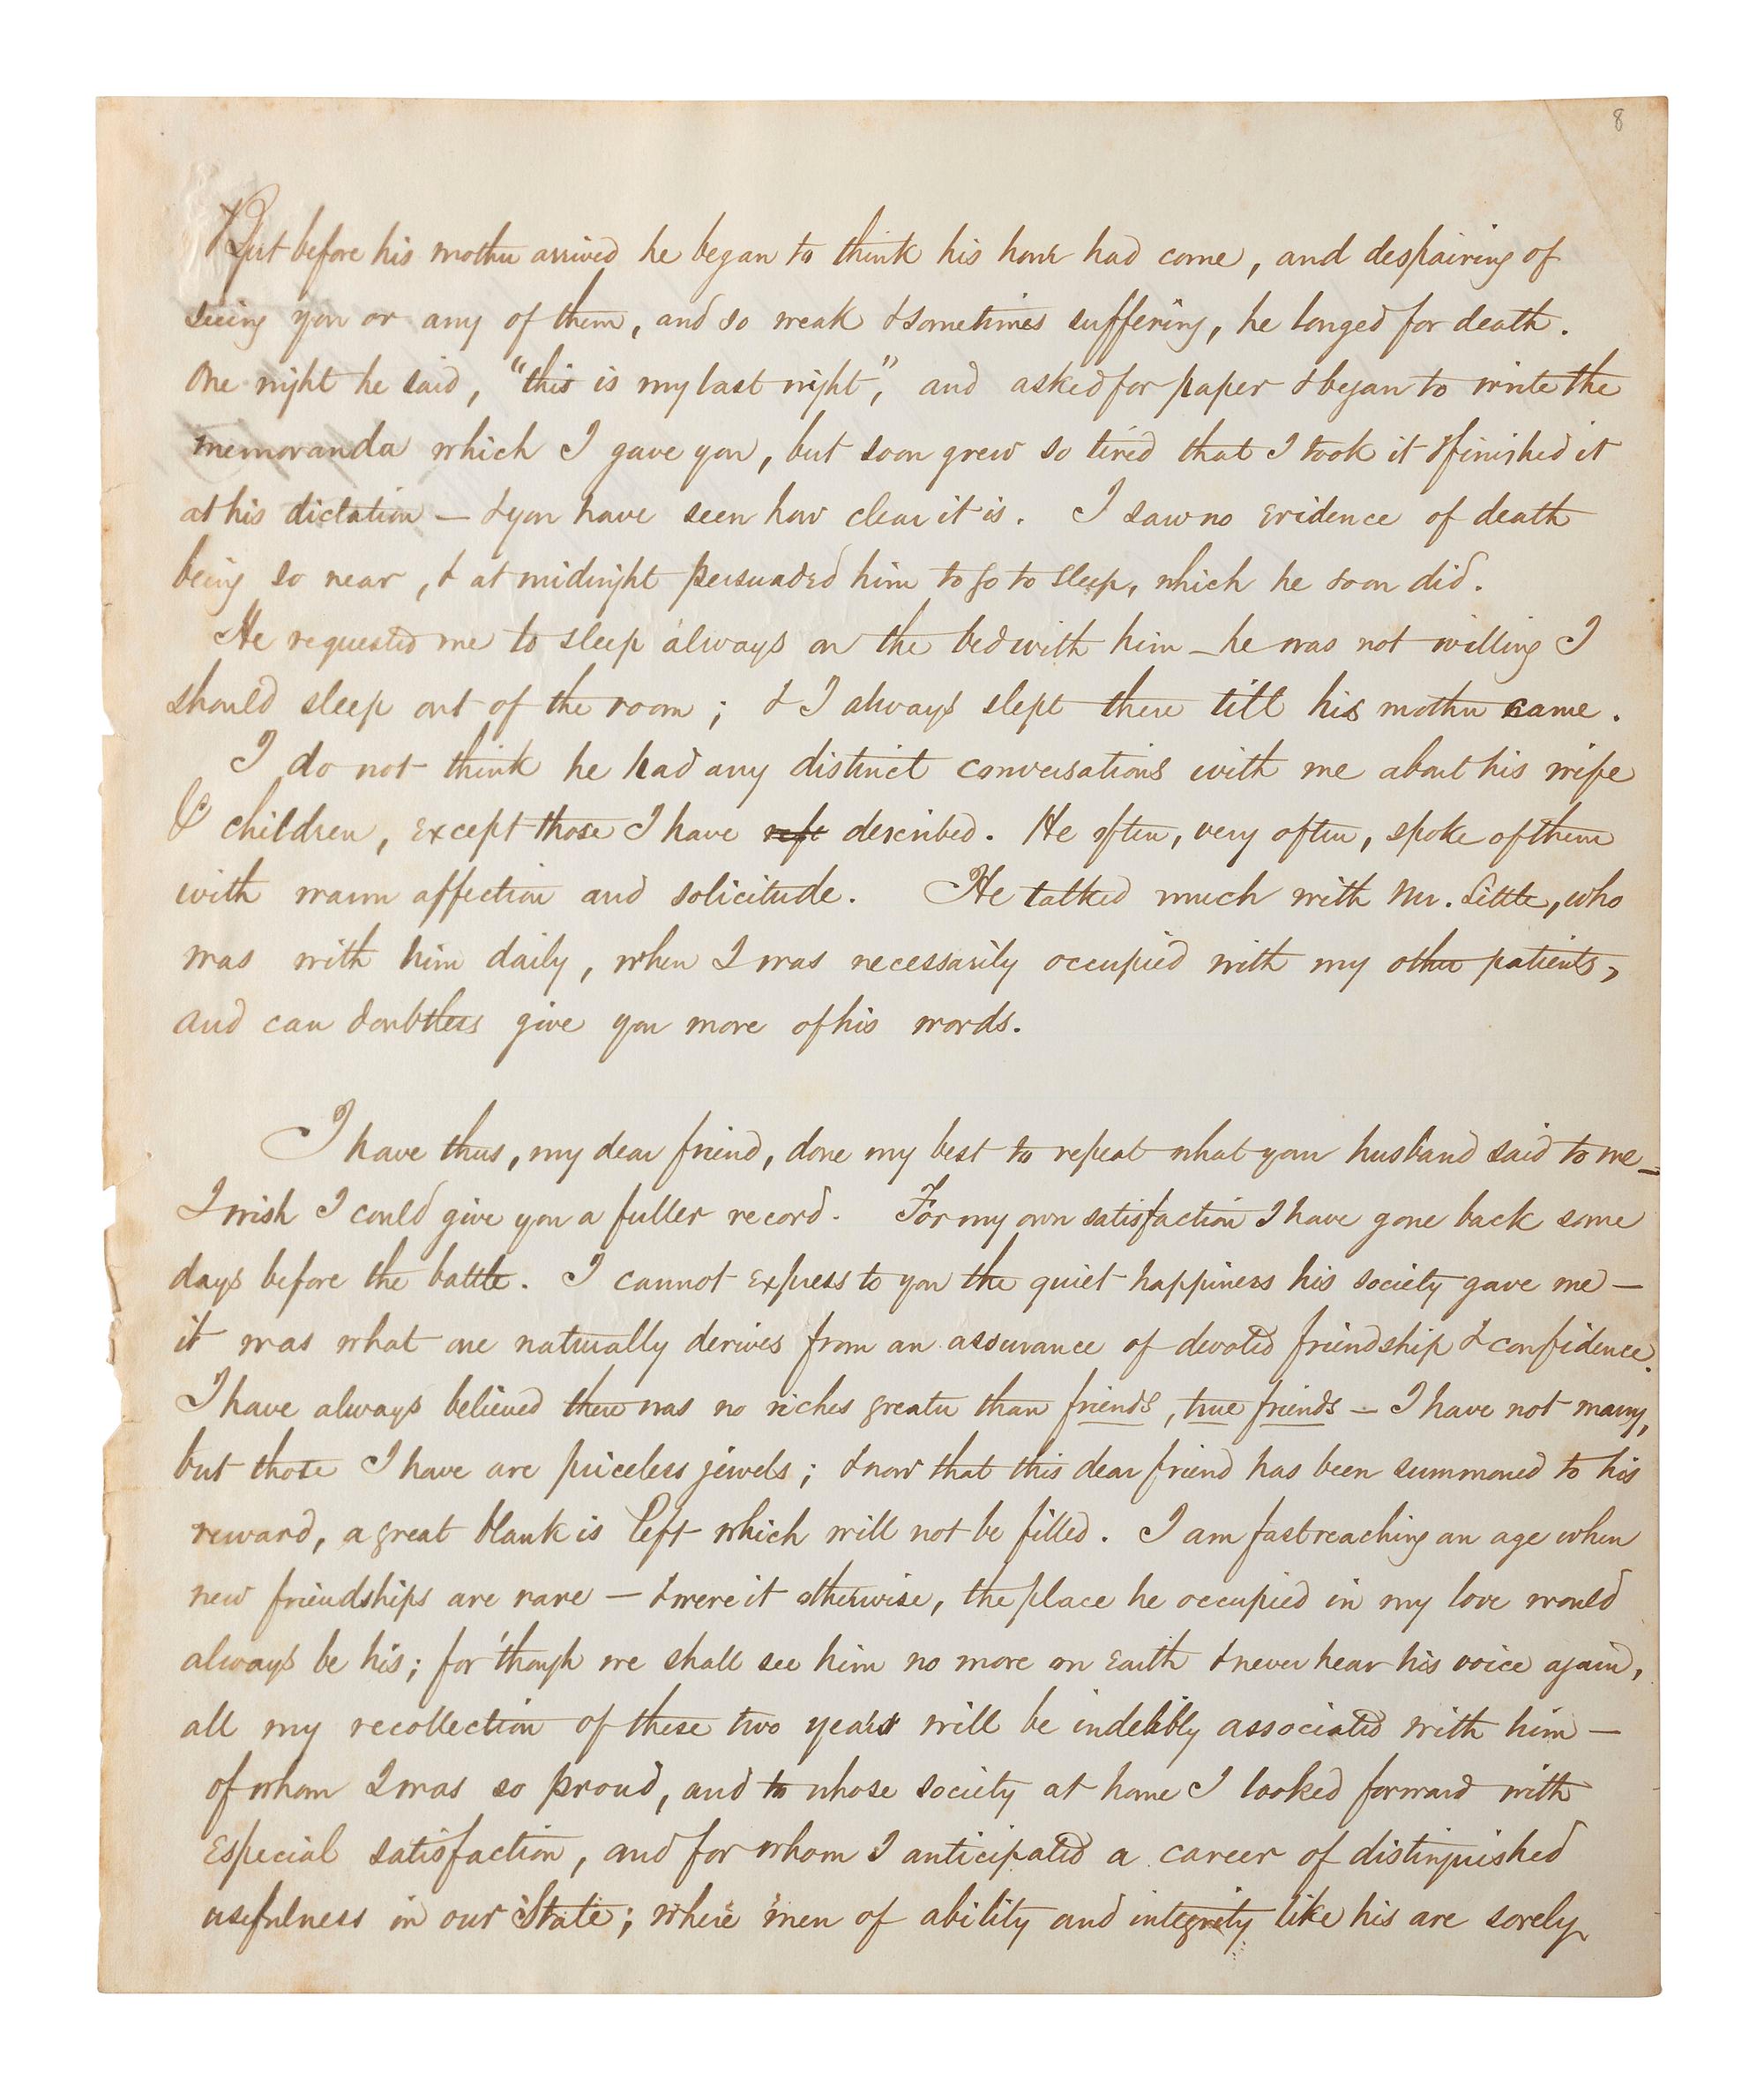 8
But before his mother arrived he began to think his hour had come, and despairing of
seeing you or any of them, and so weak & sometimes suffering, he longed for death.
One night he said, "this is my last night", and asked for paper & began to write the
memoranda which I gave you, but soon grew so tired that I took it & finished it
at his dictation — & you have seen how clear it is. I saw no evidence of death
being so near, & at midnight persuaded him to go to sleep, which he soon did.
He requested me to sleep always on the bed with him — he was not willing I
should sleep out of the room; & I always slept there till his mother came.
I do not think he had any distinct conversations with me about his wife
& children, except those I have described. He often, very often, spoke of them
with warm affection and solicitude. He talked much with Mr. Little, who
was with him daily, when I was necessarily occupied with my other patients,
and can doubtless give you more of his words.
I have thus, my dear friend, done my best to repeat what your husband said to me —
I wish I could give you a fuller record. For my own satisfaction I have gone back some
days before the battle. I cannot express to you the quiet happiness his society gave me —
it was what one naturally derives from an assurance of devoted friendship & confidence.
I have always believed there was no riches greater than friends, true friends — I have not many,
but those I have are priceless jewels; & now that this dear friend has been summoned to his
reward, a great blank is left which will not be filled. I am fast reaching an age when
new friendships are rare — & were it otherwise, the place he occupied in my love would
always be his; for 'though we shall see him no more on Earth & never hear his voice again,
all my recollection of these two years will be indelibly associated with him —
of whom I was so proud, and to whose society at home I looked forward with
especial satisfaction, and for whom I anticipated a career of distinguished
usefulness in our State; where men of ability and integrity like his are sorely